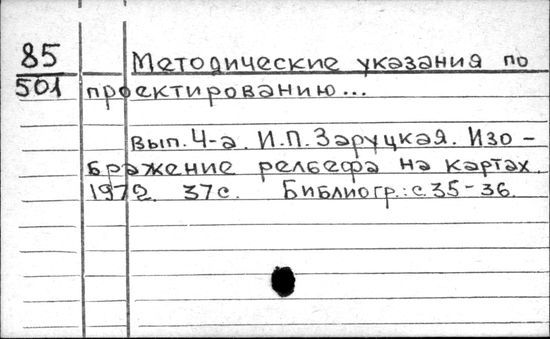 85
501
Методические указания по
проектированию...
Вып. 4-а. И.П. Заруцкая. Изо-
бражение рельефа на картах.
1972. 37с. Библиогр.: с. 35-36.